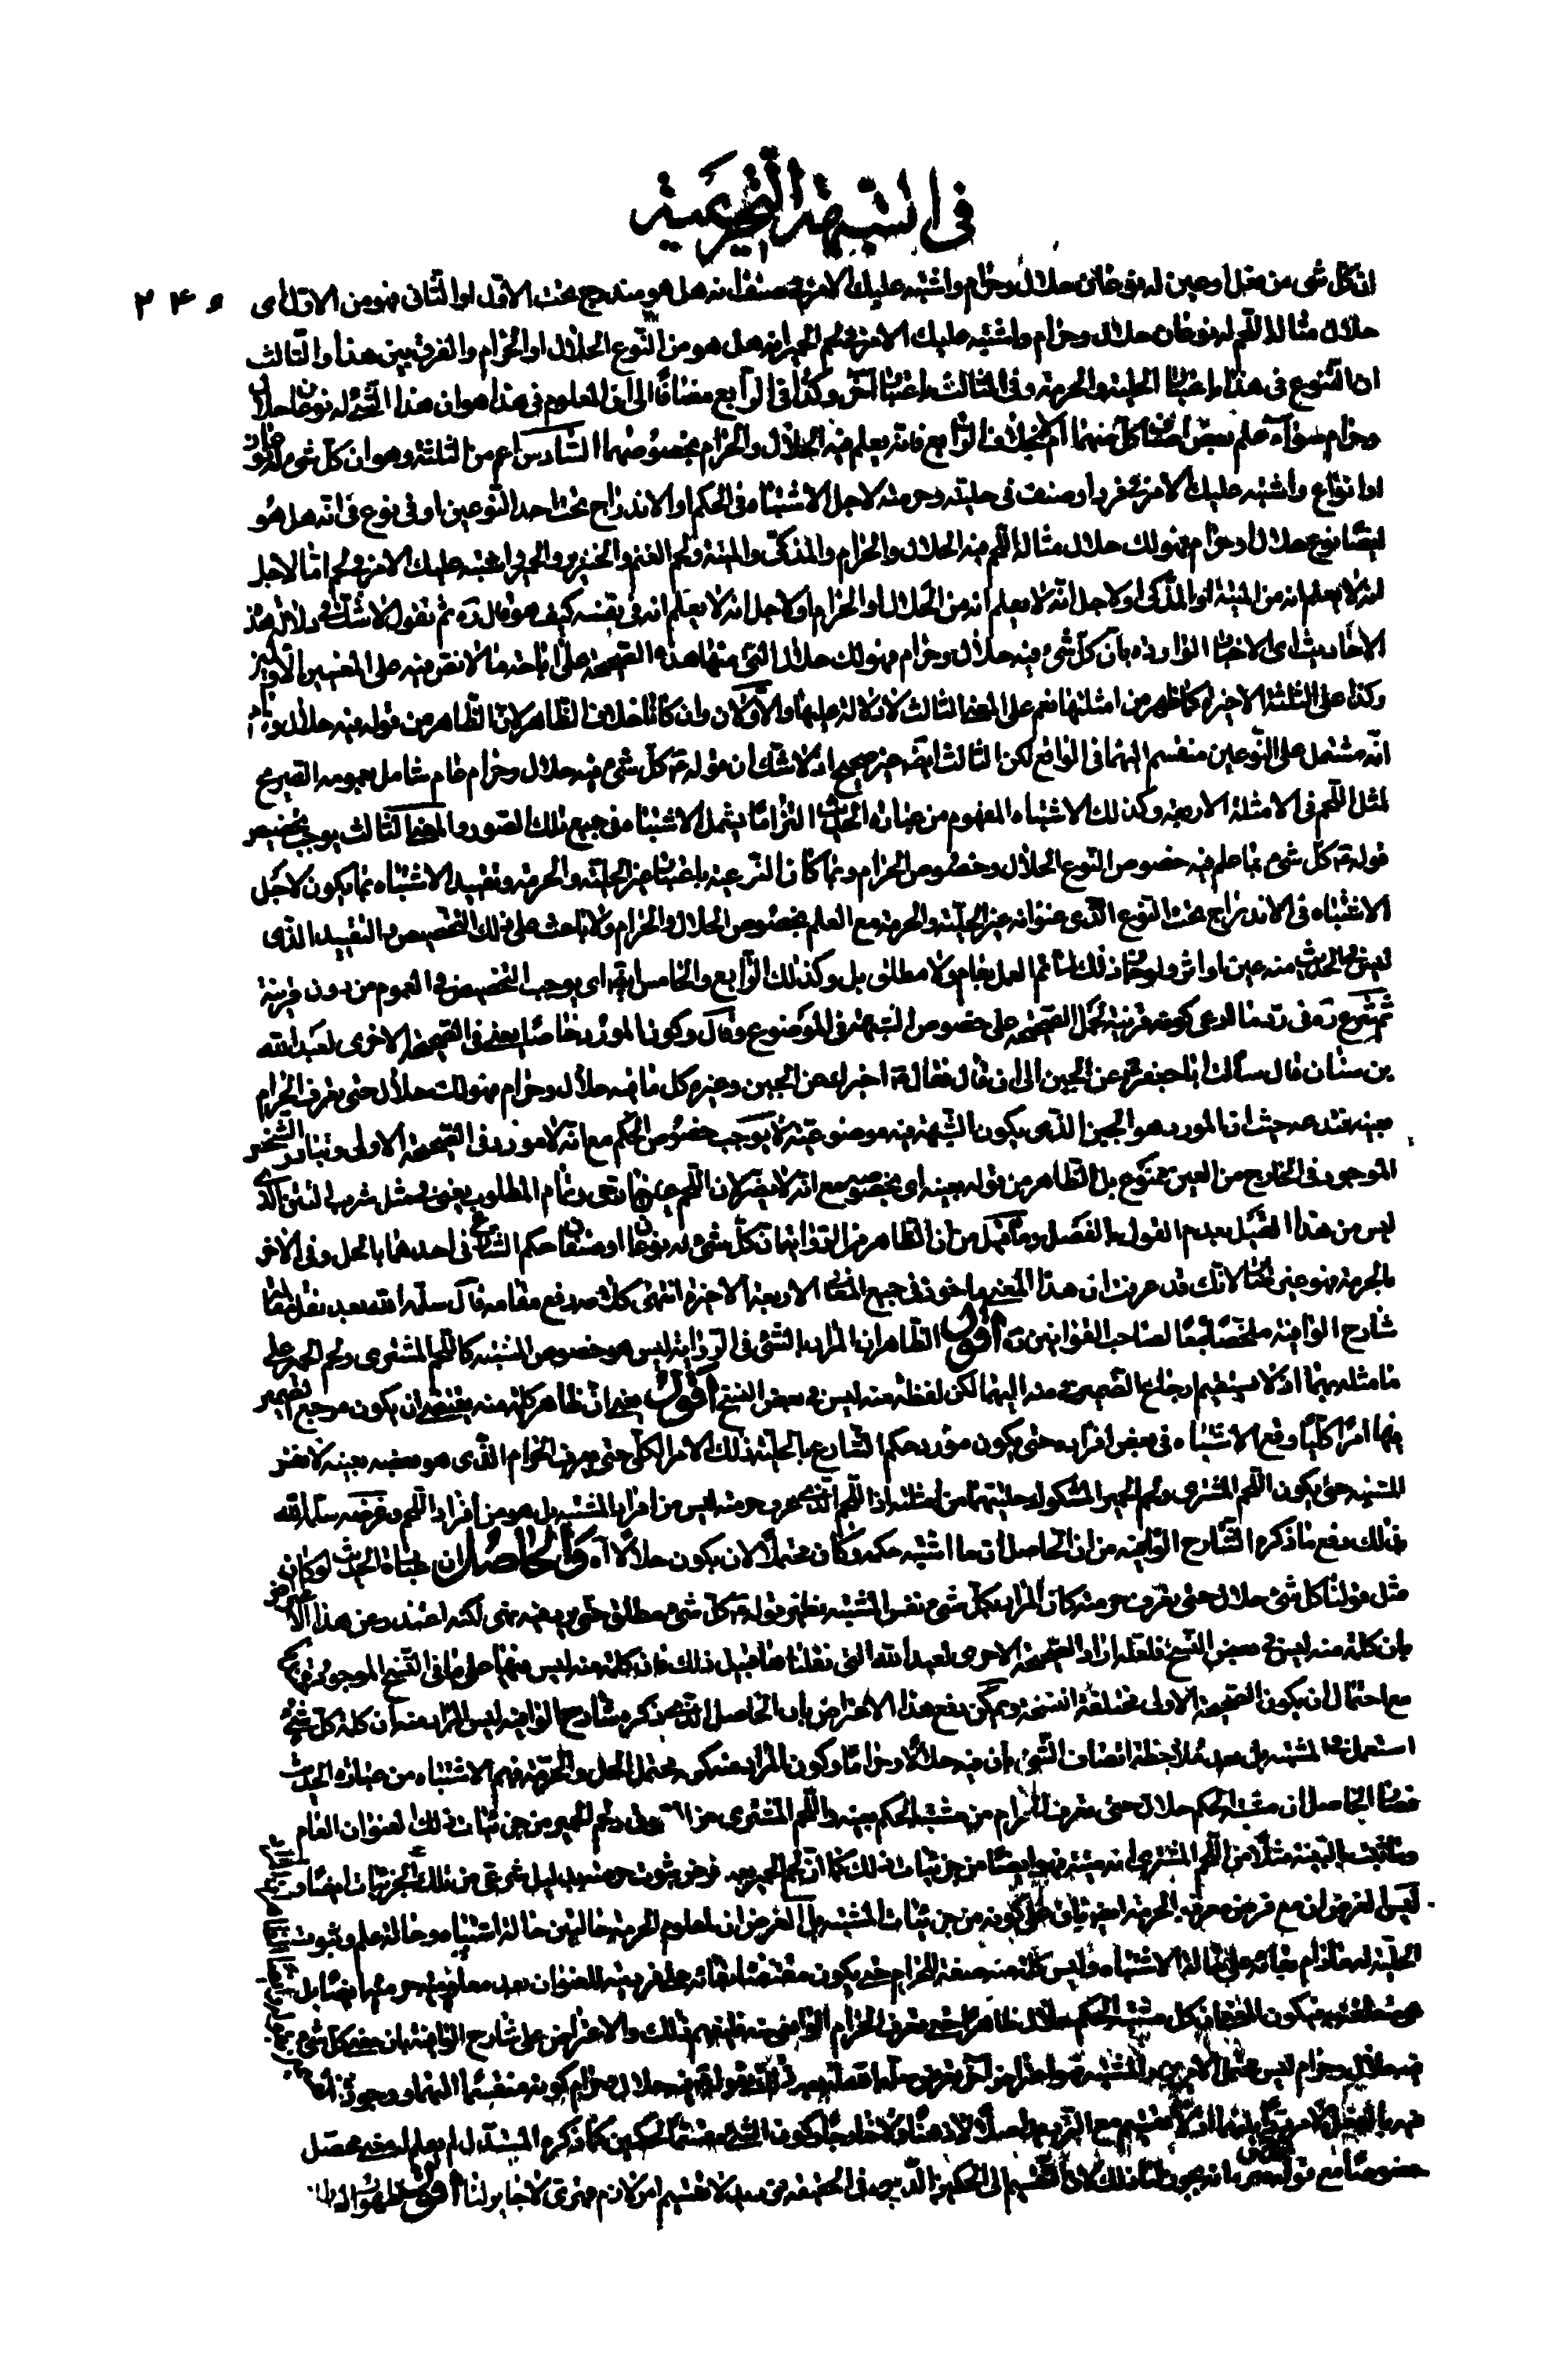 في الشبهة التحريمية
ان كل شئ من قبل او عين له نوعان حلال وحرام واشتبه عليك الامر في صنف انه هل هو مندرج تحت الاول او الثاني فهو من الاول اى
٢٤
حلال مثاله اللحم له نوعان حلال وحرام واشتبه عليك الامر في لحم الحمير انه هل هو من النوع الحلال او الحرام والفرق بين هذا والثالث
ان التنوع في هذا باعتبار الحلية والحرمة وفي الثالث باعتبار آخر وكذا في الرابع مضافا الى ان المعلوم في هذا هو ان هذا الشئ له نوعان حلال
وحرام سوآء علم بعض اصناف كل منهما ام لا بخلاف الرابع فانه يعلم فيه الحلال والحرام بخصوصهما السادس اعم من الثلثة وهو ان كل شئ له نوعان
او انواع واشتبه عليك الامر في فرد او صنف في حليته وحرمته لاجل الاشتباه في الحكم او الاندراج تحت احد النوعين او في نوع في انه هل هو
ايضا نوع حلال او حرام فهو لك حلال مثاله اللحم فيه الحلال والحرام والمذكى والميتة ولحم الغنم والخنزير والحمير اشتبه عليك الامر في لحم اما لاجل
انه لا يعلم انه من الميتة او المذكى او لاجل انه لا يعلم انه من الحلال او الحرام او لاجل انه لا يعلم انه في نفسه كيف هو قال ره ثم نقول لا شك في دلالة هذه
الاحاديث اى الاخبار الواردة بان كل شئ فيه حلال وحرام فهو لك حلال التى منها هذه الصحيحة على اباحة ما لا نص فيه على المعنيين الاولين
وكذا على الثلثة الاخيرة كما ظهر من امثلتها نعم على المعنى الثالث لا دلالة عليها والاولان وان كانا خلاف الظاهر لان الظاهر من قوله فيه حلال وحرام
انه مشتمل على النوعين منقسم اليهما في الواقع لكن الثالث ايضا غير صحيح اذ لا شك ان قوله ع كل شئ فيه حلال وحرام عام شامل بعمومه
لمثل اللحم في الامثلة الاربعة وكذلك الاشتباه المفهوم من عبارة الحديث التزاما يشمل الاشتباه في جميع تلك الصور والمعنى الثالث يوجب تخصيص
قوله ع كل شئ بما علم فيه خصوص النوع الحلال وخصوص الحرام وبما كان النوعية باعتبار غير الحلية والحرمة وتقييد الاشتباه بما يكون لاجل
الاشتباه في الاندراج تحت النوع الذى عنوانه غير الحلية والحرمة مع العلم بخصوص الحلال والحرام ولا باعث على ذلك التخصيص والتقييد الذى
ليس في الحديث منه عين او اثر ولو جاز ذلك لما تم العمل بعام ولا مطلق بل وكذلك الرابع والخامس ايضا اى يوجب التخصيص في العموم من دون قرينة
ثم شرع ره في رد ما ادعى كونه قرينة لحمل الصحيحة على خصوص الشبهة في الموضوع وقال وكون المورد خاصا يعنى في الصحيحة الاخرى لعبد الله
بن سنان قال سألت ابا جعفر ع عن الجبن الى ان قال فقال ع اخبرك عن الجبن وغيره كل ما فيه حلال وحرام فهو لك حلال حتى تعرف الحرام
بعينه فتدعه حيث ان المورد هو الجبن الذى يكون الشبهة فيه موضوعية لا يوجب خصوص الحكم مع انه لا مورد في الصحيحة الاولى وتبادر الشخص
الموجود في الخارج من العين ممنوع بل الظاهر من قوله بعينه اى بخصوصه مع انه لا يضر لان اللحم عين خارجى وتمام المطلوب يعنى في مثل شرب التتن الذى
ليس من هذا القبيل بعدم القول بالفصل وما قيل من ان الظاهر من الرواية ان كل شئ له نوعان او صنفان حكم الشارع في احدهما بالحل وفي الاخر
بالحرمة فهو غير ضار لانك قد عرفت ان هذا المعنى ماخوذ في جميع المعانى الاربعة الاخيرة انتهى كلامه رفع مقامه قال سلمه الله بعد نقل مقالة
شارح الوافية ملخصا تبعا لصاحب القوانين ره اقول الظاهر ان المراد بالشئ في الرواية ليس هو خصوص المشتبه كاللحم المشترى ولحم الحمير على
ما مثله بهما اذ لا يستقيم ارجاع الضمير في منه اليهما لكن لفظة منه ليس في بعض النسخ اقول يعنى ان ظاهر كلمة منه يقتضى ان يكون مرجع الضمير
فيها امرا كليا وقع الاشتباه في بعض افراده حتى يكون مورد حكم الشارع بالحلية ذلك الامر الكلى حتى يعرف الحرام الذى هو بعضه بعينه لا نفس
المشتبه حتى يكون اللحم المشترى ولحم الحمير المشكوك حليتهما من امثلته اذ اللحم الذى عرف حرمته ليس من افراد المشتبه بل هو من افراد اللحم وغرضه سلمه الله
من ذلك دفع ما ذكره الشارح الوافية من ان الحاصل ان ما اشتبه حكمه وكان محتملا لان يكون حلالا آه والحاصل ان عبارة الحديث لو كان
مثل قولنا كل شئ حلال حتى تعرف حرمته كان المراد بكل شئ نفس المشتبه نظير قوله ع كل شئ مطلق حتى يرد فيه نهى لكنه اعتذر عن هذا الاعتراض
بان كلمة منه ليس في بعض النسخ فلعله اراد الصحيحة الاخرى لعبد الله التى نقلناها قبيل ذلك فان كلمة منه ليس فيها على ما في النسخ الموجودة
مع احتمال ان يكون الصحيحة الاولى مختلفة النسخة ويمكن دفع هذا الاعتراض بان الحاصل الذى ذكره شارح الوافية ليس المراد منه ان كلمة كل شئ
استعمل في المشتبه بل بعد ملاحظة اتصاف الشئ بان فيه حلالا وحراما وكون المراد منه كونه محتمل الحل والحرمة فهم الاشتباه من عبارة الحديث
فصار الحاصل ان مشتبه الحكم حلال حتى تعرف الحرام من مشتبه الحكم بعينه واللحم المشترى من السوق ولحم الحمير من جزئيات ذلك العنوان العام
وما ثبت بالبينة مثلا من اللحم المشترى انه ميتة فهو ايضا من جزئيات ذلك كما ان لحم الحمير بعد فرض ثبوت حرمته بدليل شرعى من تلك الجزئيات ايضا
ليس الغرض ان مع فرض معرفة الحرمة ايضا باق على كونه من جزئيات المشتبه بل الغرض ان لمعلوم الحرمة حالتين حالة اشتباه وحالة علم وثبوت
الحلية له ما دام بقائه على حالة الاشتباه وليس كلمة منه صفة للحرام حتى يكون مقتضيا بقائه على فردية العنوان بعد معرفة حرمته ايضا بل
هى متعلقة بتعرف فيكون المعنى ان كل مشتبه الحكم حلال ظاهرا حتى تعرف الحرام الواقعى منه فافهم ذلك والاعتراض على شارح الوافية بان معنى كل شئ
فيه حلال وحرام ليس محتمل الامرين
خصوصا مع قوله